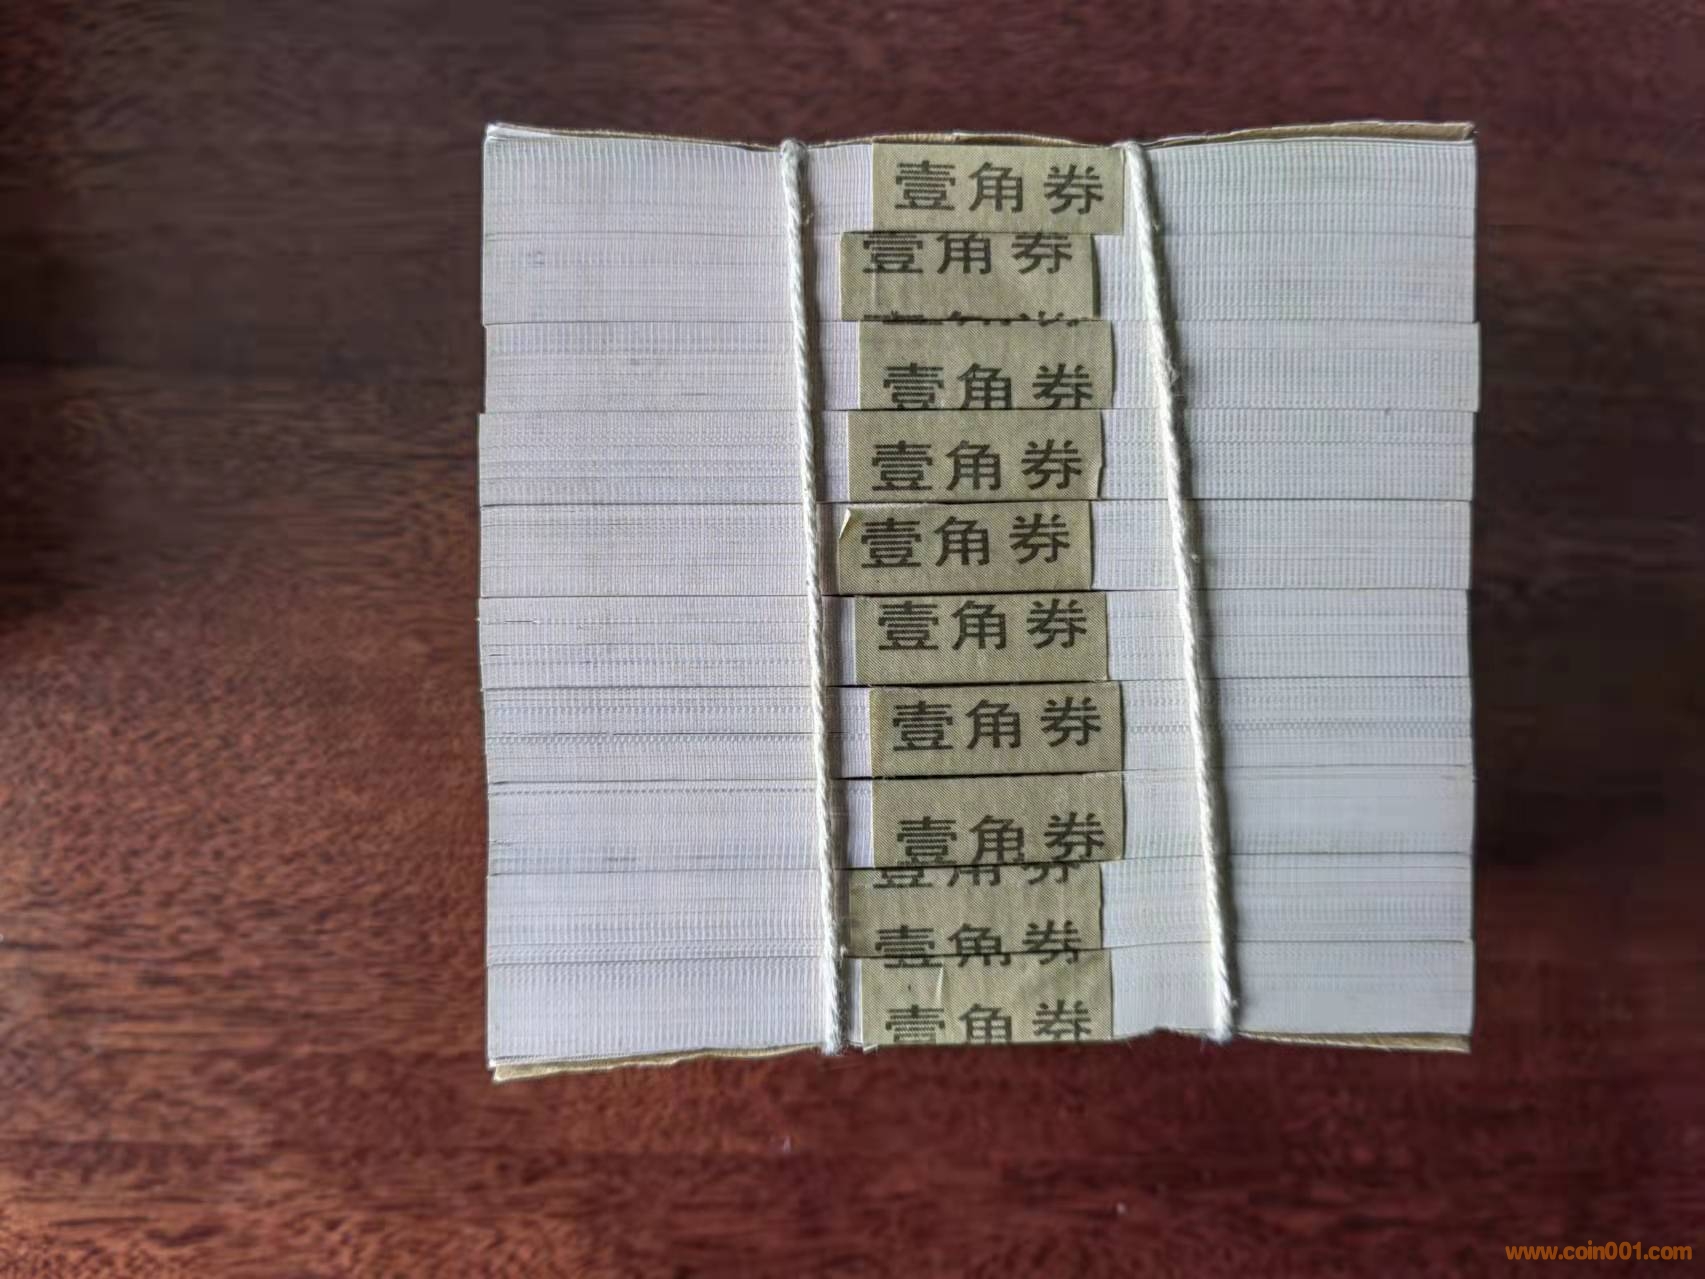 壹角券
壹角券
壹角券
壹角券
壹角券
壹角券
壹角券
壹角券
壹角券
壹角券
壹角券
www.coin001.com